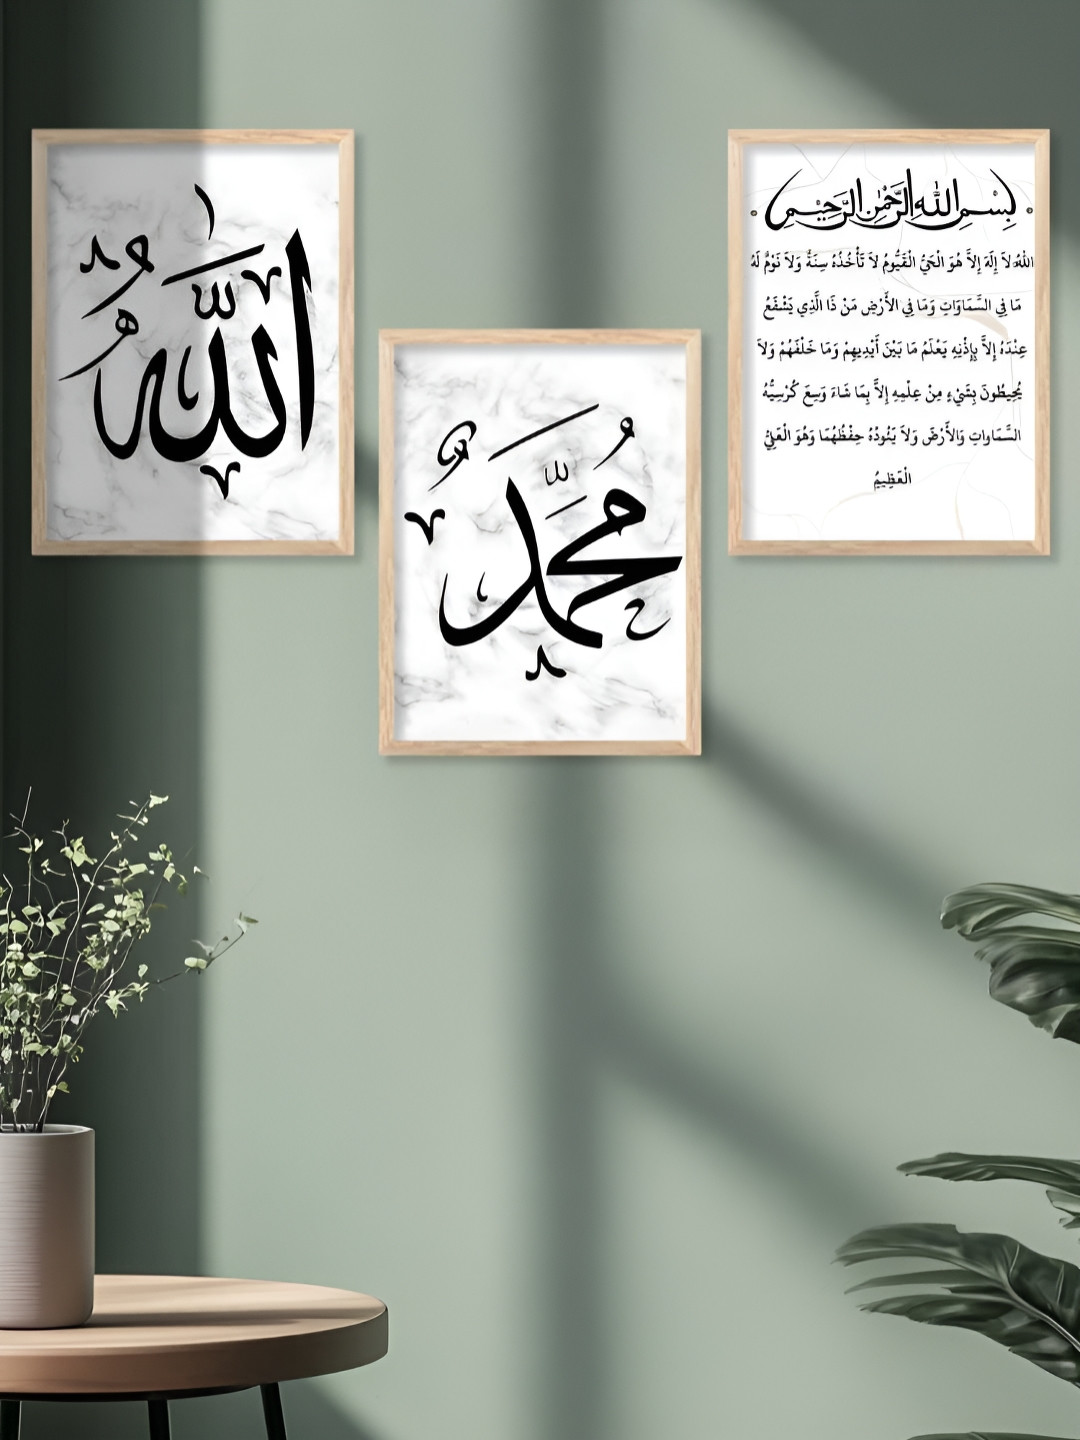 الله
محمد
بِسْمِ اللهِ الرَّحْمٰنِ الرَّحِيْمِ
اللهُ لاَ إِلَهَ إِلاَّ هُوَ الْحَيُّ الْقَيُّومُ لاَ تَأْخُذُهُ سِنَةٌ وَلاَ نَوْمٌ لَهُ
مَا فِي السَّمَاوَاتِ وَمَا فِي الأَرْضِ مَنْ ذَا الَّذِي يَشْفَعُ
عِنْدَهُ إِلاَّ بِإِذْنِهِ يَعْلَمُ مَا بَيْنَ أَيْدِيهِمْ وَمَا خَلْفَهُمْ وَلاَ
يُحِيطُونَ بِشَيْءٍ مِنْ عِلْمِهِ إِلاَّ بِمَا شَاءَ وَسِعَ كُرْسِيُّهُ
السَّمَاواتِ وَالأَرْضَ وَلاَ يَئُودُهُ حِفْظُهُمَا وَهُوَ الْعَلِيُّ
الْعَظِيمُ